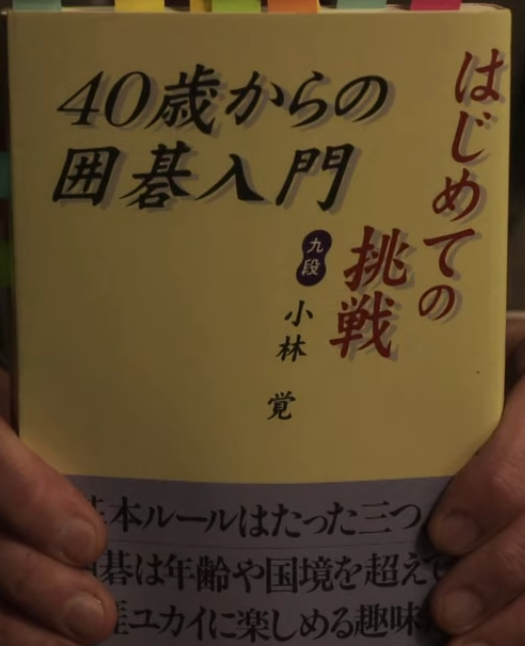 はじめての
挑戦
40歳からの
囲碁入門
九段
小林 覚
本ルールはたった三つ
碁は年齢や国境を超えて
ユカイに楽しめる趣味